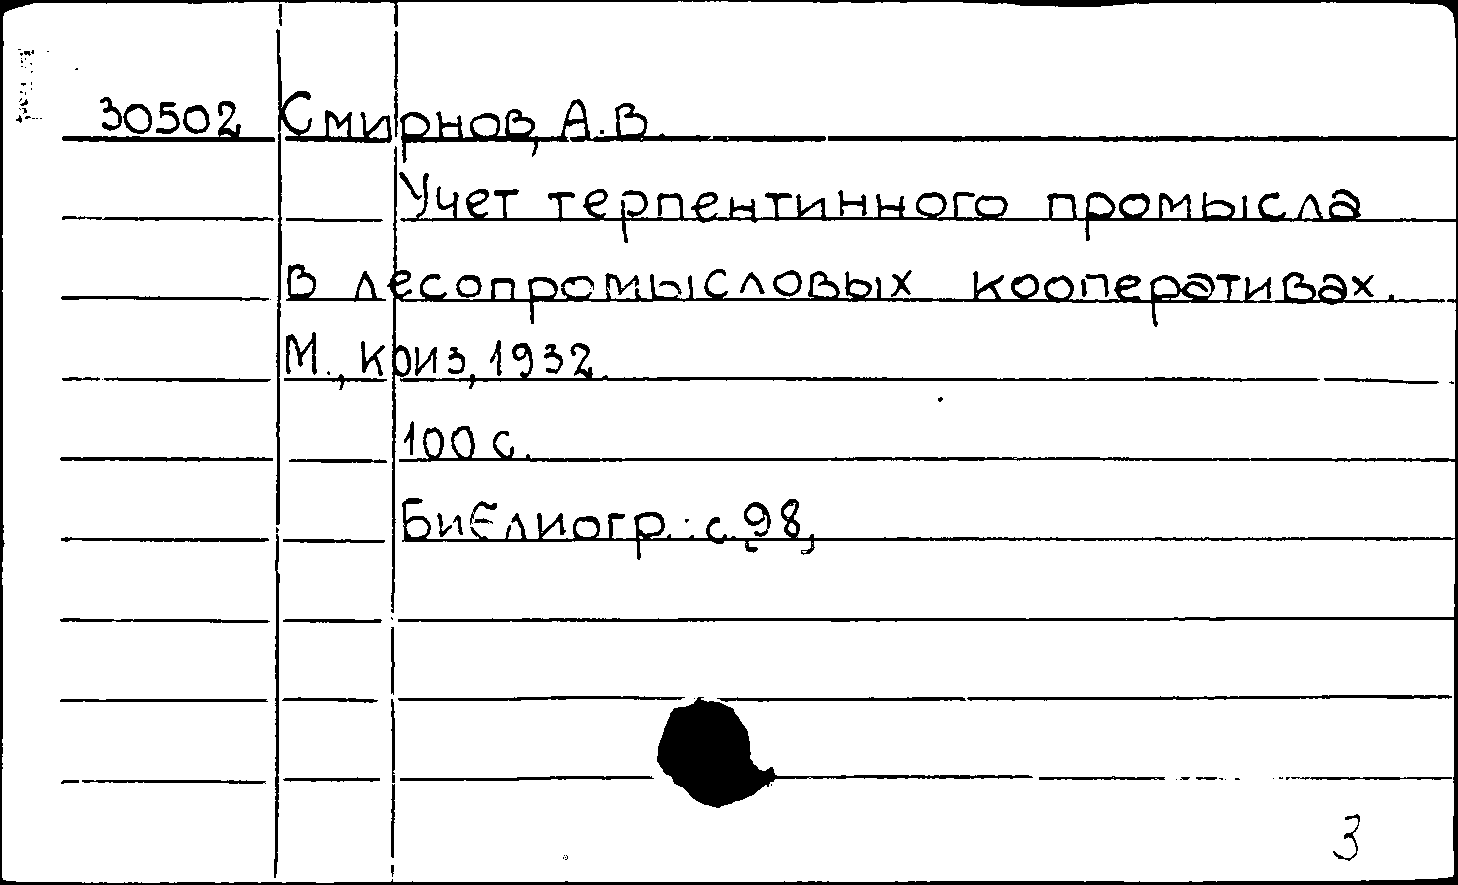 30502 Смирнов, А.В.
Учет терпентинного промысла
в лесопромысловых кооперативах.
М., коиз, 1932.
100 с.
Библиогр.: с. 98,
3